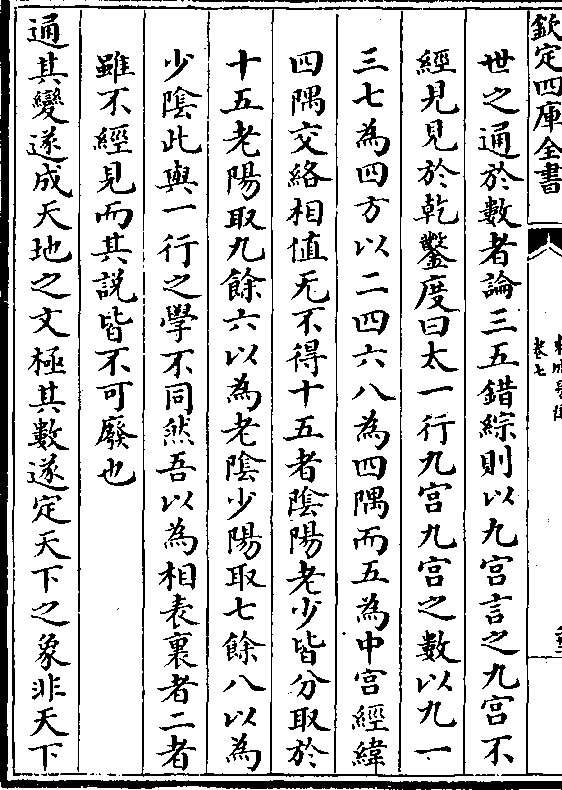 欽定四庫全書
卷七
世之通於數者論三五錯綜則以九宮言之九宮不
經見見於乾鑿度曰太一行九宮九宮之數以九一
三七為四方以二四六八為四隅而五為中宮經緯
四隅交絡相值无不得十五者陰陽老少皆分取於
十五老陽取九餘六以為老陰少陽取七餘八以為
少陰此與一行之學不同然吾以為相表裏者二者
雖不經見而其説皆不可廢也
通其變遂成天地之文極其數遂定天下之象非天下